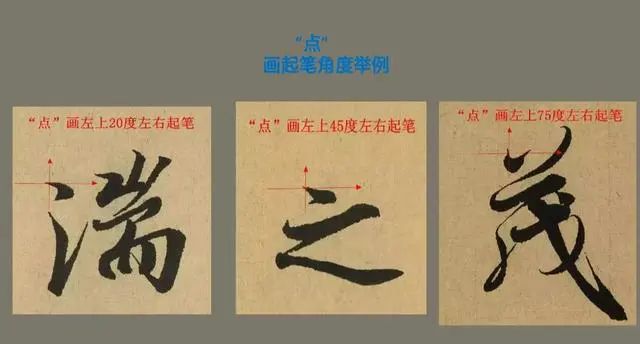 “点”
画起笔角度举例
“点”画左上20度左右起笔
“点”画左上45度左右起笔
“点”画左上75度左右起笔
湍
之
茂